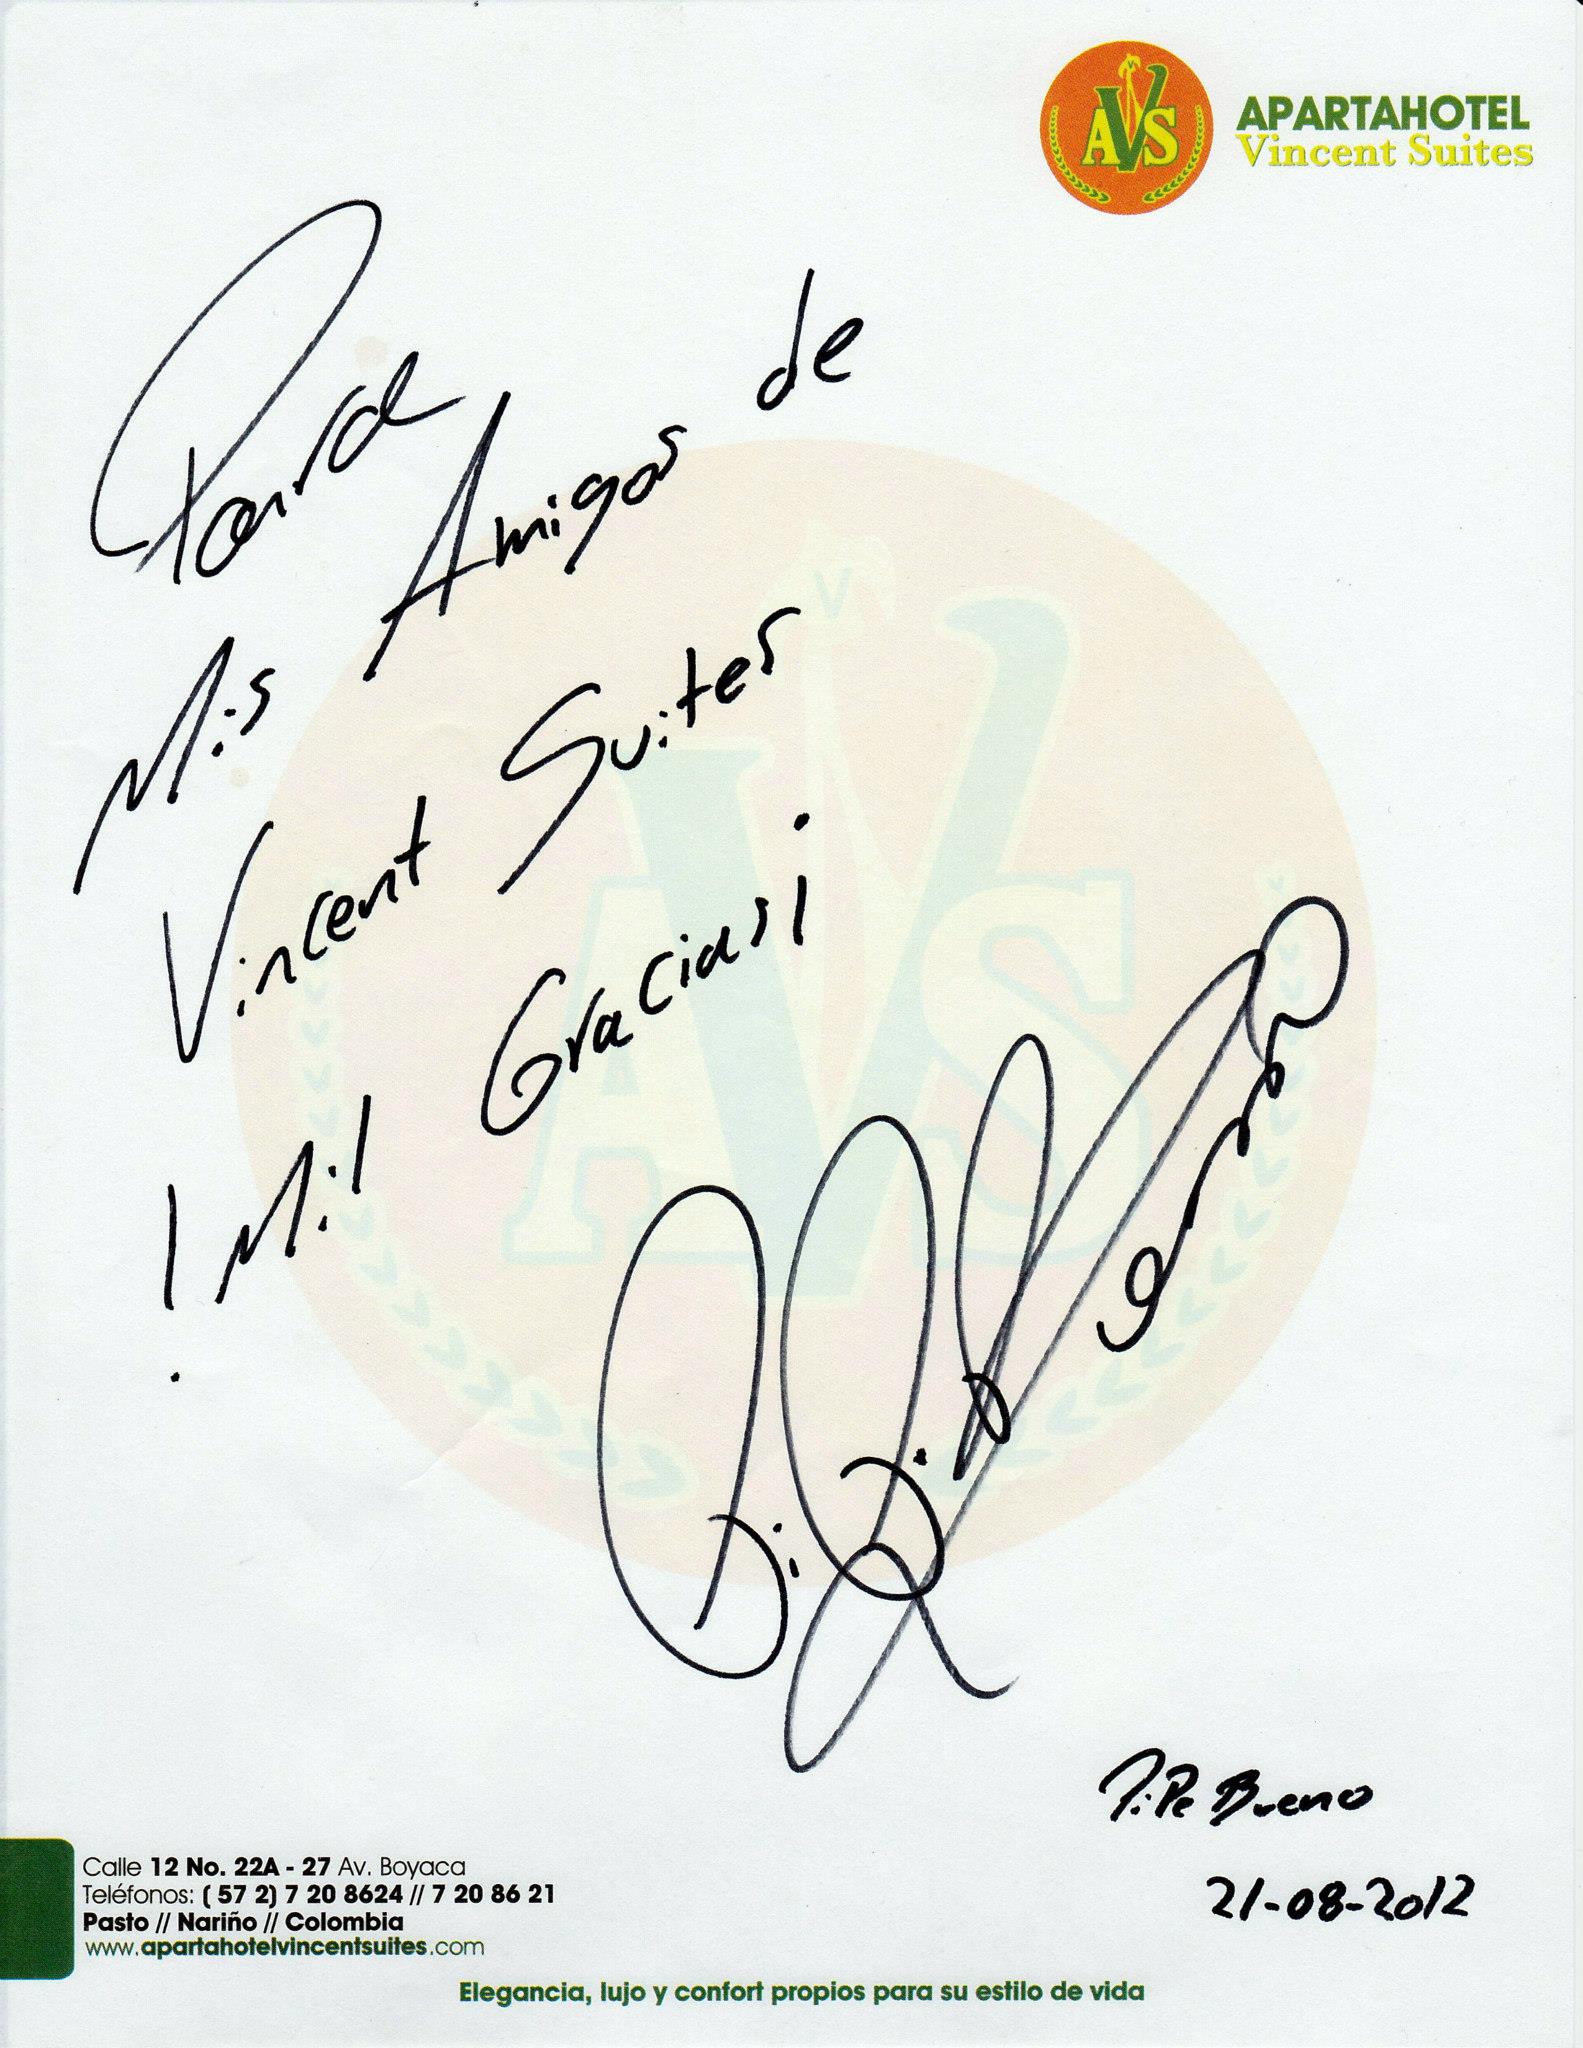 AVS
APARTAHOTEL
Vincent Suites
Para
Mis Amigos de
Vincent Suites
! Mil Gracias!
Pipe Bueno
Pipe Bueno
21-08-2012
Calle 12 No. 22A - 27 Av. Boyaca
Teléfonos: ( 57 2) 7 20 8624 // 7 20 86 21
Pasto // Nariño // Colombia
www.apartahotelvincentsuites.com
Elegancia, lujo y confort propios para su estilo de vida